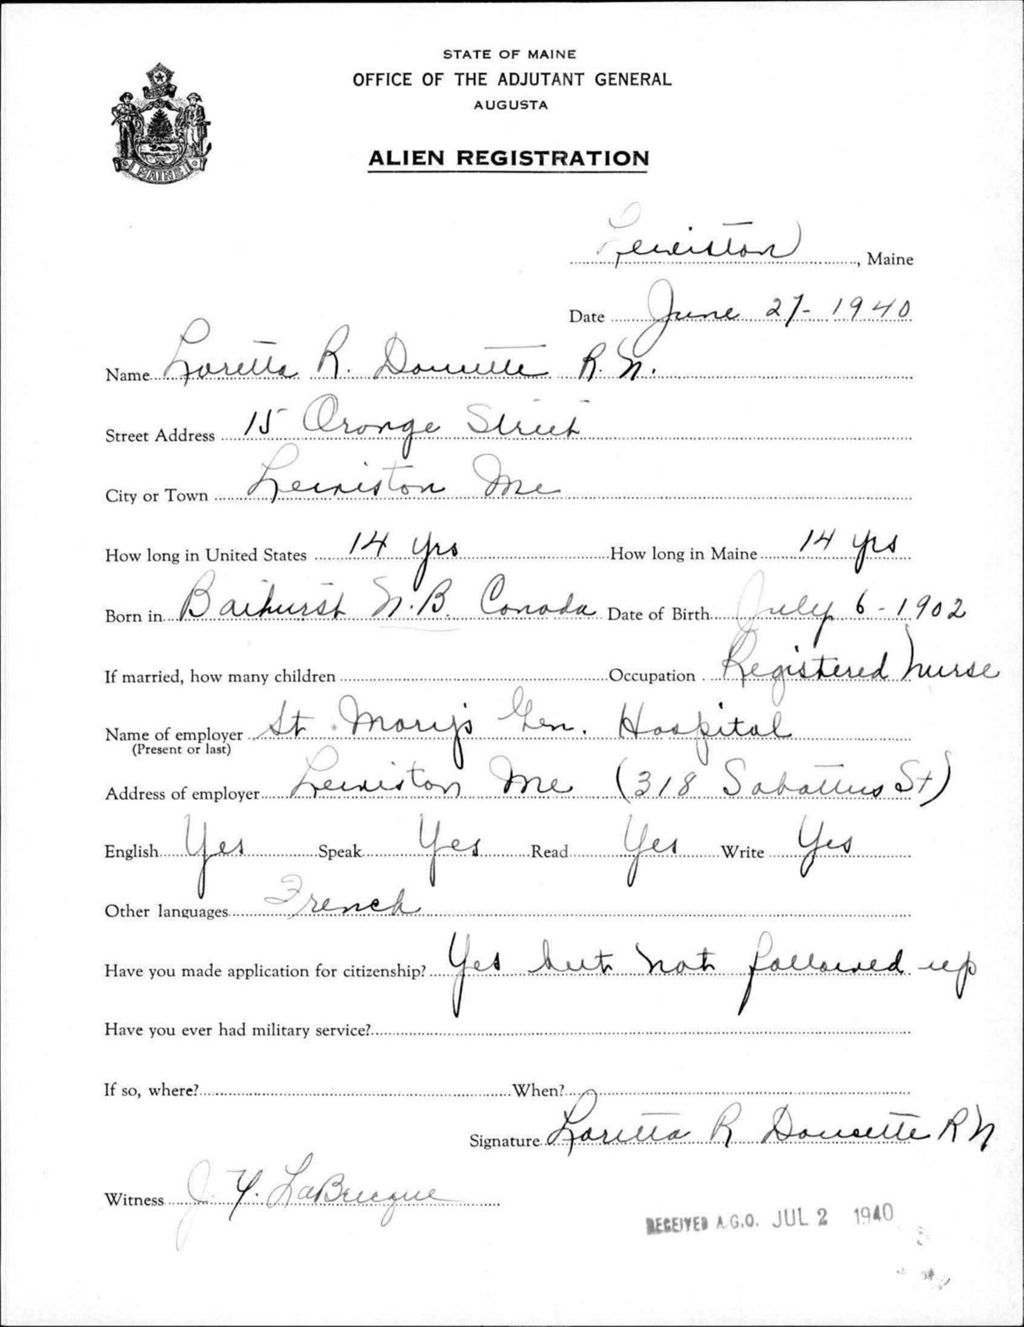 STATE OF MAINE
OFFICE OF THE ADJUTANT GENERAL
AUGUSTA
ALIEN REGISTRATION
MAINE
Lewiston, Maine
Date June 27- 1940
Name Loretta R. Doucette R.N.
Street Address 15 Orange Street
City or Town Lewiston Me
How long in United States 14 yrs How long in Maine 14 yrs
Born in Bathurst N.B. Canada Date of Birth July 6 - 1902
If married, how many children Occupation Registered Nurse
Name of employer St. Mary's Gen. Hospital
(Present or last)
Address of employer Lewiston Me (318 Sabattus St)
English Yes Speak Yes Read Yes Write Yes
Other languages French
Have you made application for citizenship? Yes but not followed up
Have you ever had military service?
If so, where? When?
Signature Loretta R Doucette RN
Witness J. Y. LaBrecque
RECEIVED A.G.O. JUL 2 1940